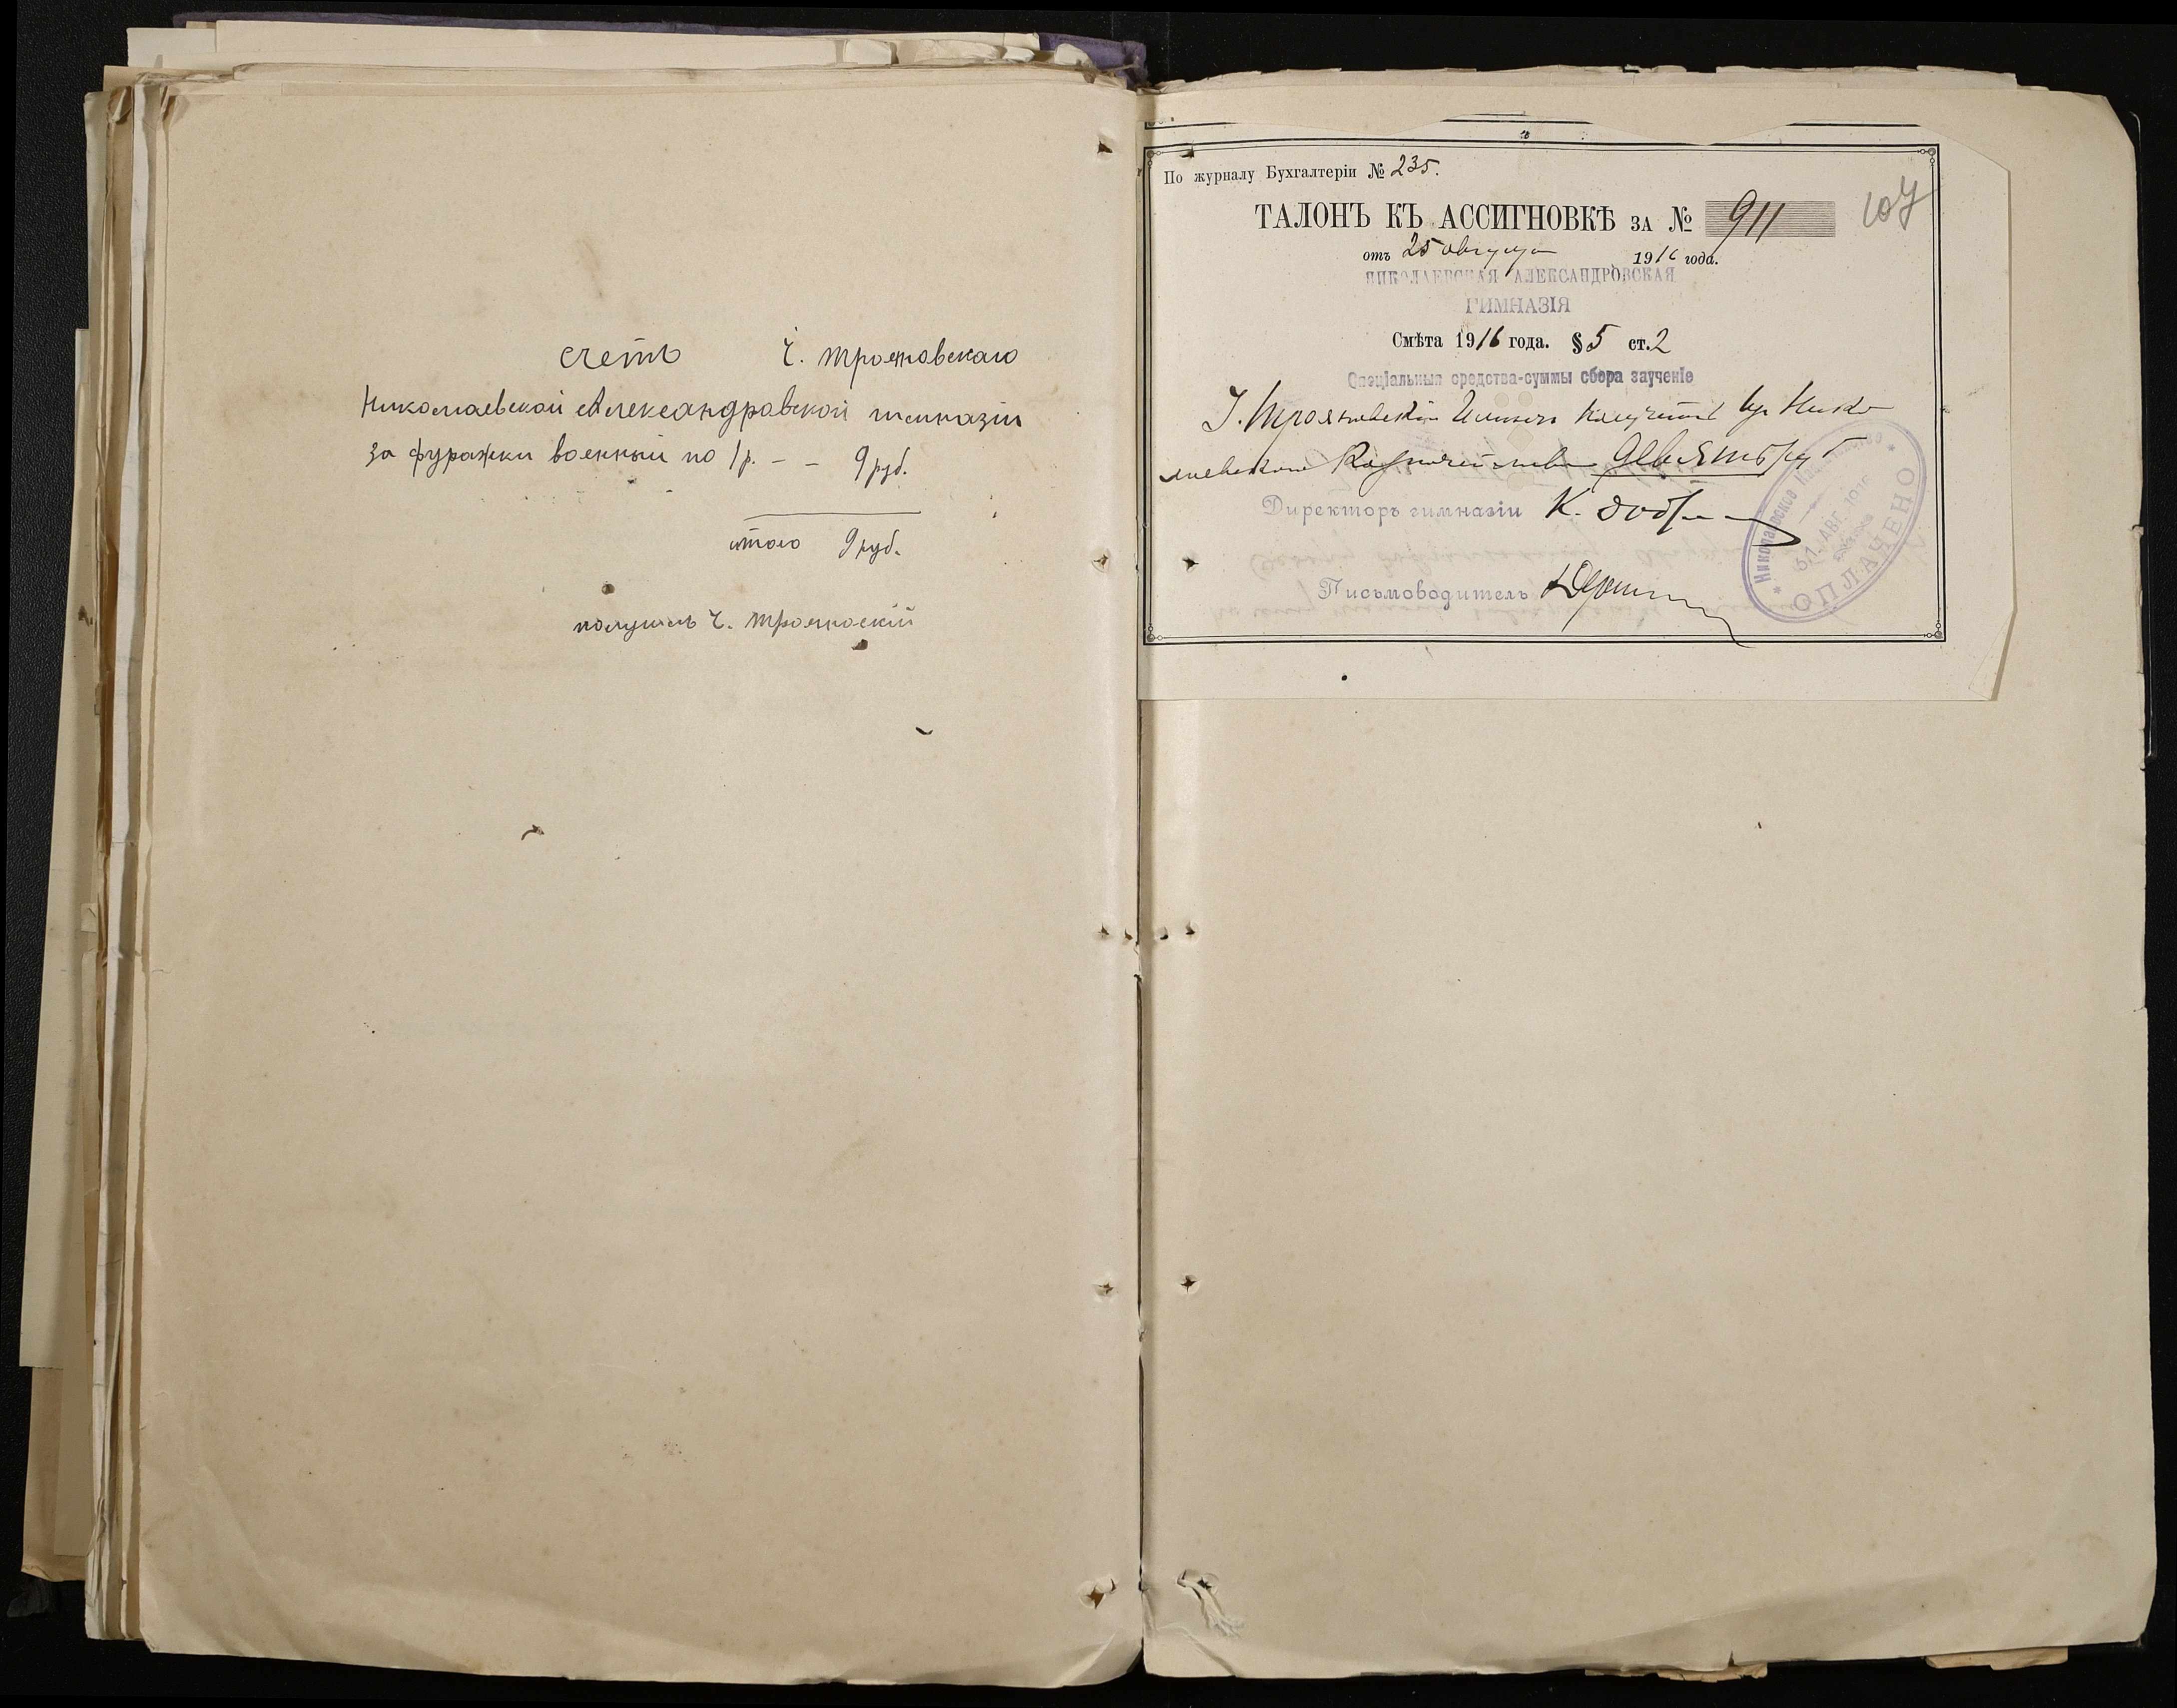 счетъ Ч. Трояновскаго
Николаевской Александровской гимназіи
За фуражки военный по 1 р. - - 9 руб.
итого 9 руб.
получилъ Ч. Трояноскій
По журналу Бухгалтеріи № 235.
107
ТАЛОНЪ КЪ АССИГНОВКѢ ЗА № 911
отъ 25 августа 1916 года.
НИКОЛАЕВСКАЯ АЛЕКСАНДРОВСКАЯ
ГИМНАЗІЯ
Смѣта 1916 года. § 5 ст. 2
Спеціальныя средства-суммы сбора заученіе
Трояновскій имѣетъ получить изъ Нико
лаевскаго Казначейства Девять руб
Директоръ гимназіи К.
Письмоводитель
Николаевское
31 АВГ. 1916
ОПЛАЧЕНО